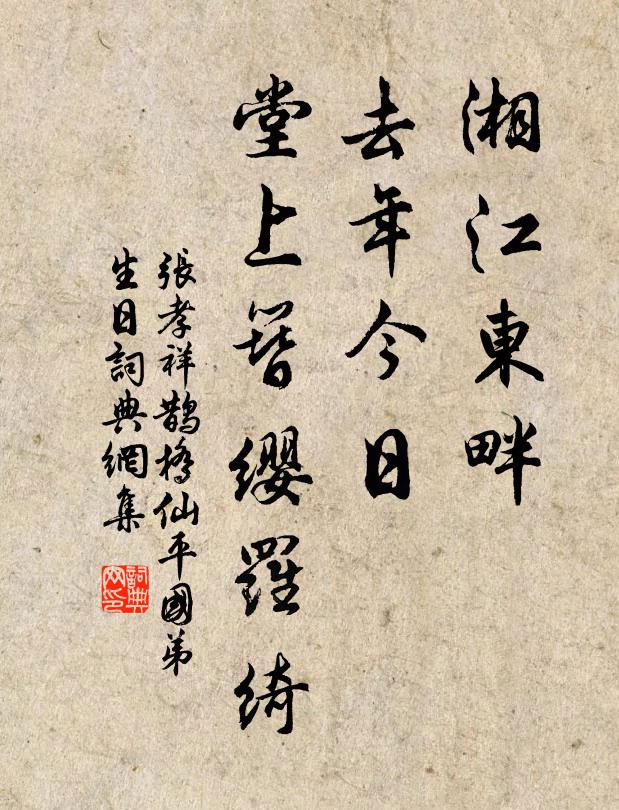 湘江東畔
去年今日
堂上簪纓羅綺
張孝祥鵲橋仙平國弟
生日詞典網集
詞典网印